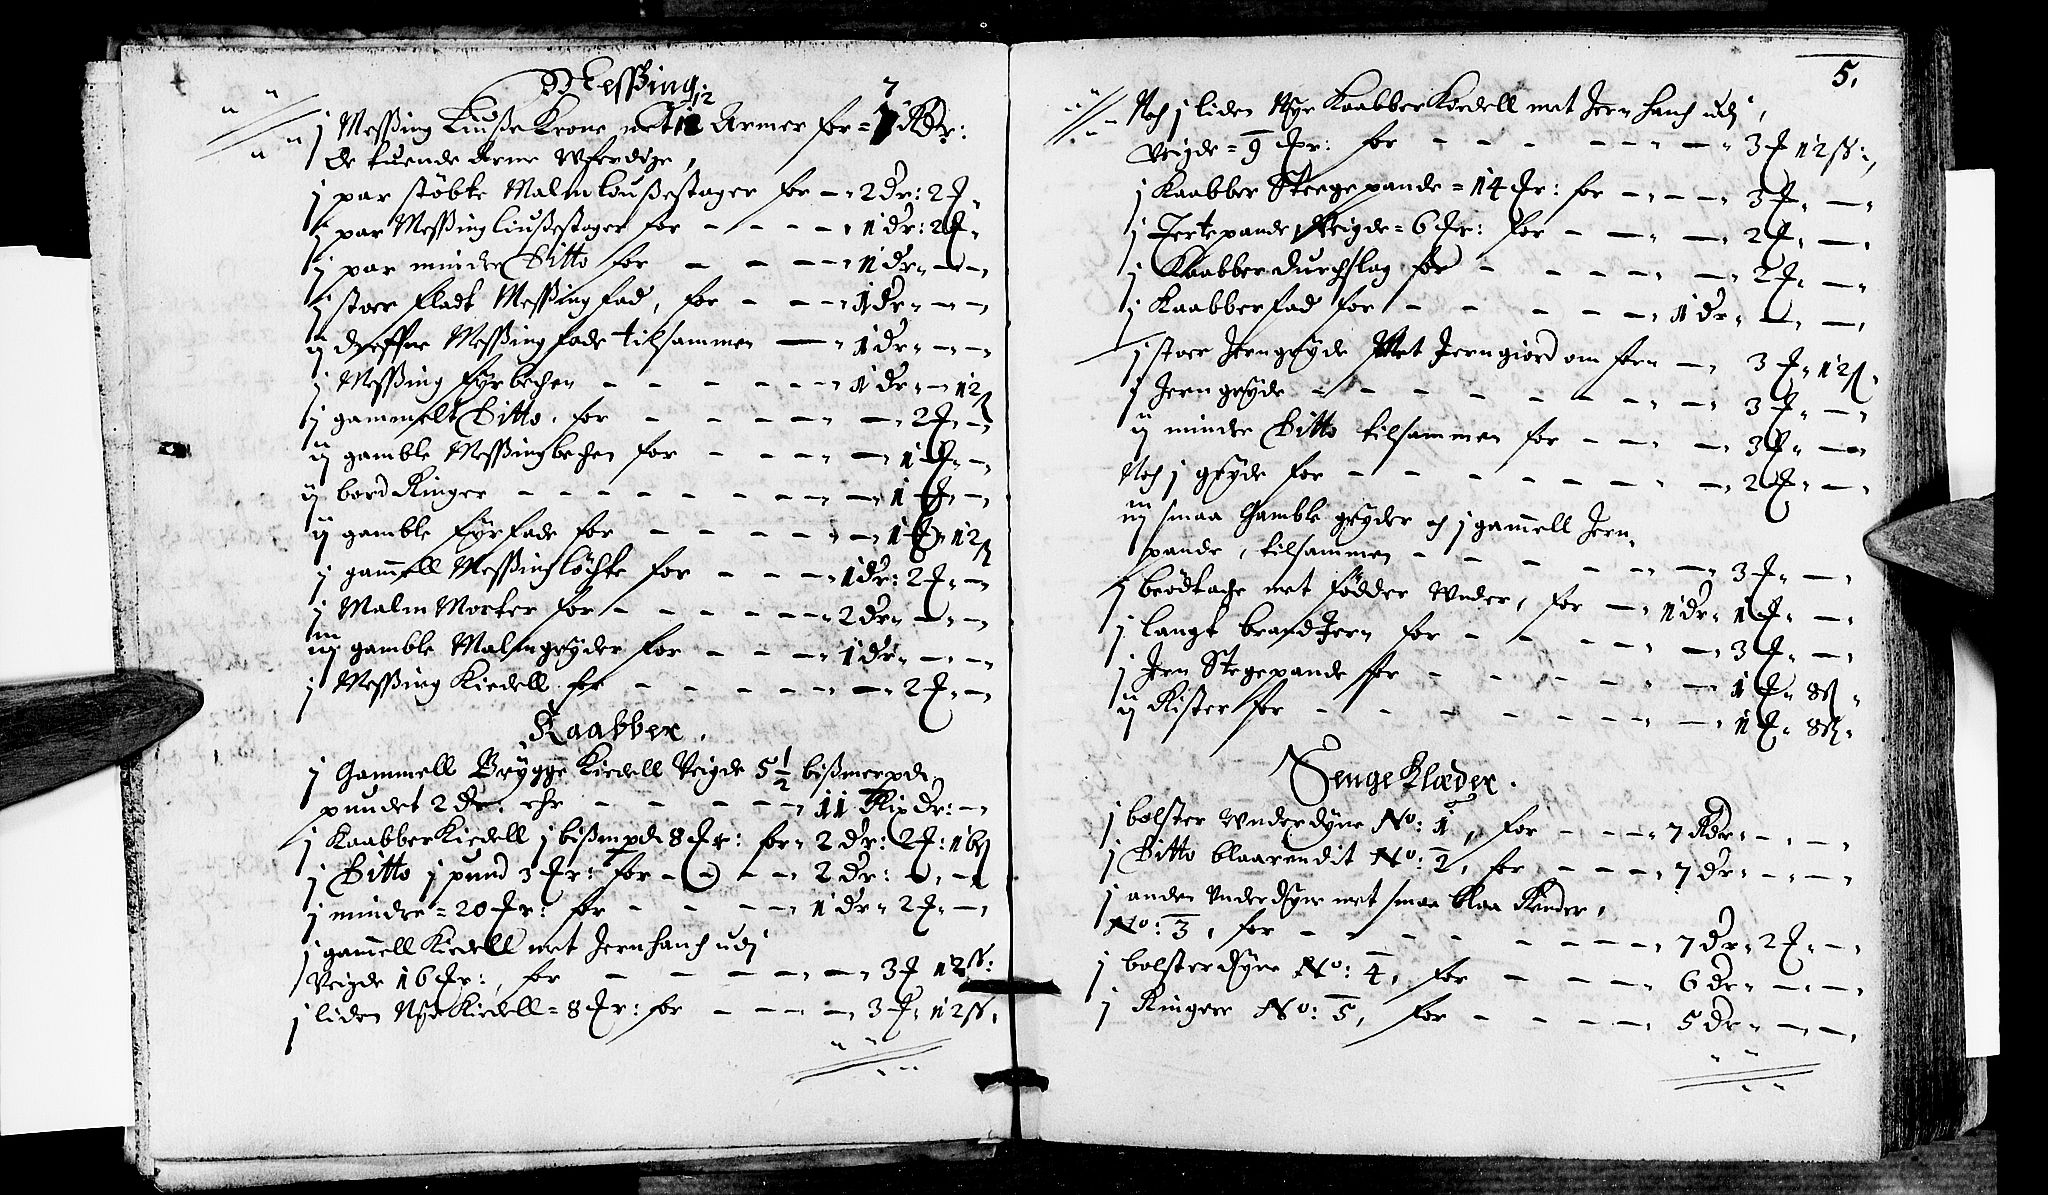 Messing
j Messing Liuße Krone met 12 Armer for = 7 Rdr:
de tuende Arme Uferdige,
j par støbte Malm louße stager for – 2 dr: 2 ₰
j par Messing liußestager for – – – – 1 dr: 2 ₰
j par minder Ditto for – – – – 1 dr – –
j stoer fladt Messing fad, for – – – 1 dr – –
ij dreffne Messing fade tilsammen – 1 dr – –
j Messing fyrbechen – – – – – – 1 dr – 12 ß
j gammelt Ditto. for – – – – – 2 ₰ –
ij gamble Messingbechen for – – – – 1 ₰ –
ij bord Ringer – – – – – – – – 1 ₰ –
ij gamble fyrfade for – – – – – 1 ₰ 12 ß
j gammell Messing løchte for – – – 1 dr: 2 ₰ –
j Malm Morter for – – – – – 2 dr – –
iij gamble Malmgryder for – – – 1 dr – –
j Messing Kiedell for – – – – – – 2 ₰ –
Kaabber.
j Gammell Brygge Kiedell Veigde 5 1/2 bißmerpd
pundet 2 dr: ehr – – – – – 11 Rix dr: –
j Kaabber Kiedell j bißmpd 8 ₰r: for 2 dr: 2 ₰: 16 ß
j Ditto j pund 3 ₰r: for – – – 2 dr: – –
j mindre = 20 ₰r: for – – – – 1 dr 2 ₰ –
j gammell Kiedell met Jernhanch udj
Veigde 16 ₰r:, for – – – – – 3 ₰ 12 ß:
j liden Nye Kiedell = 8 ₰r: for – – – – 3 ₰ 12 ß,
5.
Noch j liden Nye Kaabber Kiedell met Jern hanch udj,
Veigde = 9 ₰r: for – – – – – – – 3 ₰ 12 ß:,
j Kaabber Steegepande = 14 ₰r: for – – – 3 ₰ –
j Tertepande, Veigde = 6 ₰r: for – – – – 2 ₰ –
j Kaabber durchslag for – – – – – – 2 ₰ –
j Kaabberfad for – – – – – – 1 dr – –
j stoer Jerngryde Met Jerngiord om for – 3 ₰ 12 ß
j Jerngryde – – – – – – – – – 3 ₰ –
ij minder Ditto tilsammen for – – – – 3 ₰ –
Noch j gryde for – – – – – – – – 2 ₰ –
iij smaa Gamble gryder och j gammell Jern
pande, tilsammen – – – – – – – 3 ₰ –
j brødtache met fødder Under, for – 1 dr 1 ₰ –
j langt brand Jern for – – – – – – 3 ₰ –
j Jern Stegepande for – – – – – – 1 ₰ 8 ß
ij Rister for – – – – – – – – 1 ₰ 8 ß
Senge Klæder.
j bolster Underdyne No: 1, for – – – 7 Rdr – –
j Ditto blaarendit No: 2, for – – – 7 dr – –
j anden Underdyne met smaa blaa Render,
No: 3, for – – – – – – – 7 dr 2 ₰ –
j bolster dyne No: 4, for – – – – 6 dr – –
j Ringere No: 5, for – – – – 5 dr – –